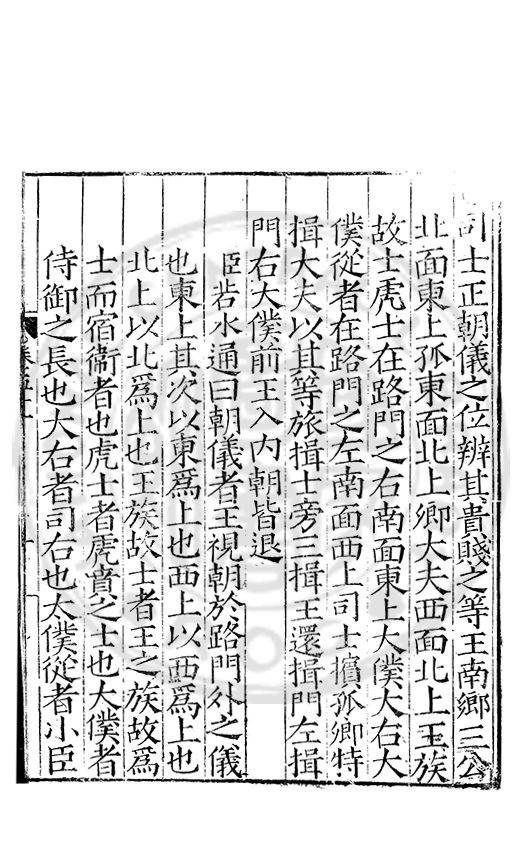 司士正朝儀之位辨其貴賤之等王南鄉三公
北面東上孤東面北上卿大夫西面北上王族
故士虎士在路門之右南面東上大僕大右大
僕從者在路門之左南面西上司士擯孤卿特
揖大夫以其等旅揖士旁三揖王還揖門左揖
門右大僕前王入内朝皆退
臣若水通曰朝儀者王視朝於路門外之儀
也東上其次以東爲上也西上以西爲上也
北上以北爲上也王族故士者王之族故爲
士而宿衞者也虎士者虎賁之士也大僕者
侍御之長也大右者司右也大僕從者小臣